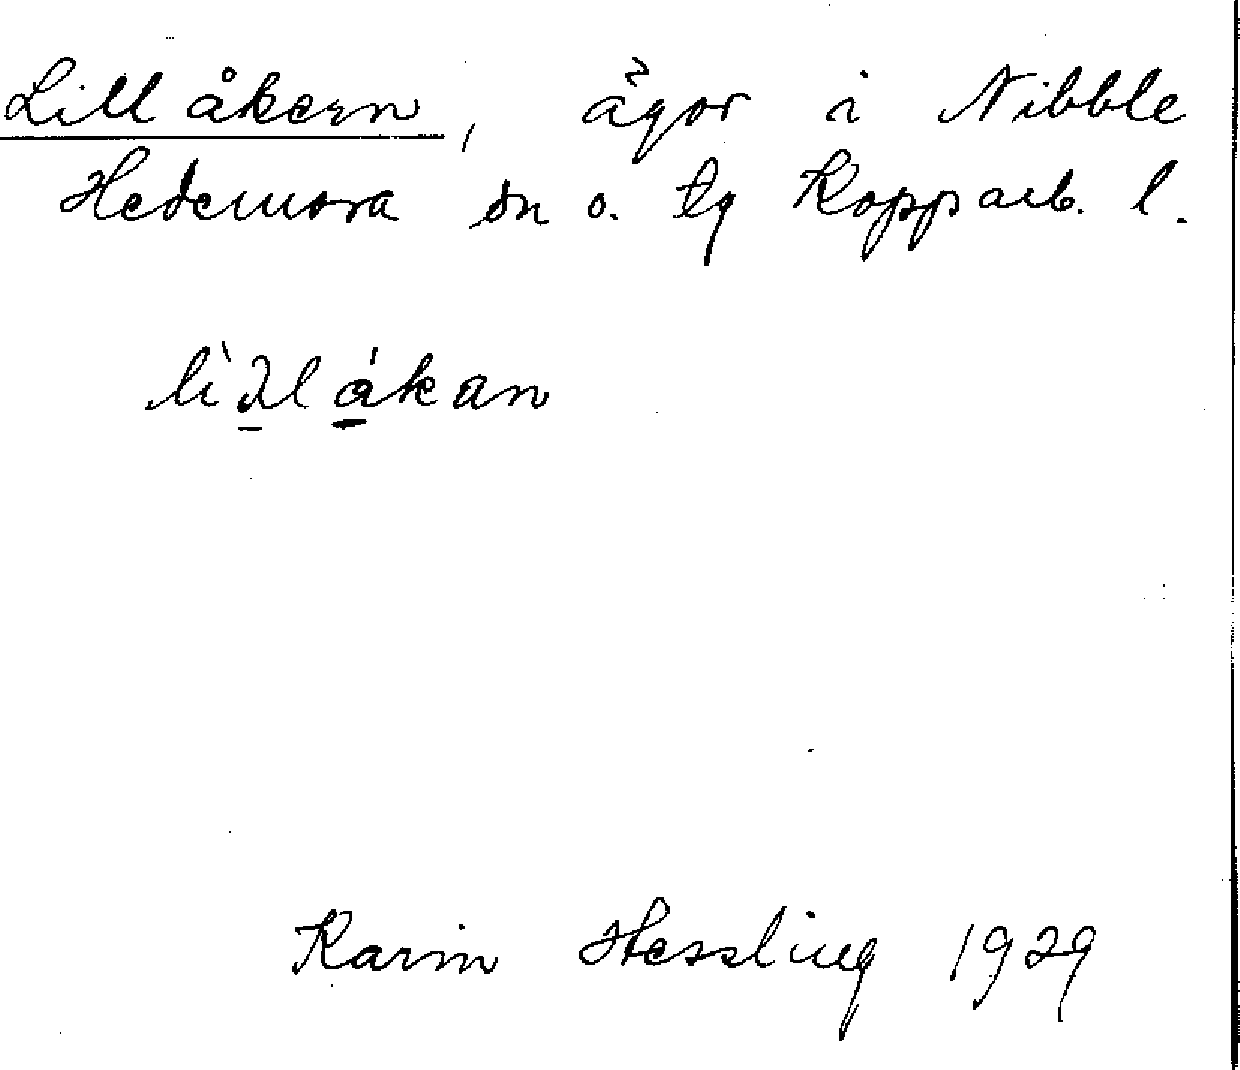 Lillåkern, ägor i Nibble
Hedemora sn o. tg Kopparb. l.
Karin Hessling 1929